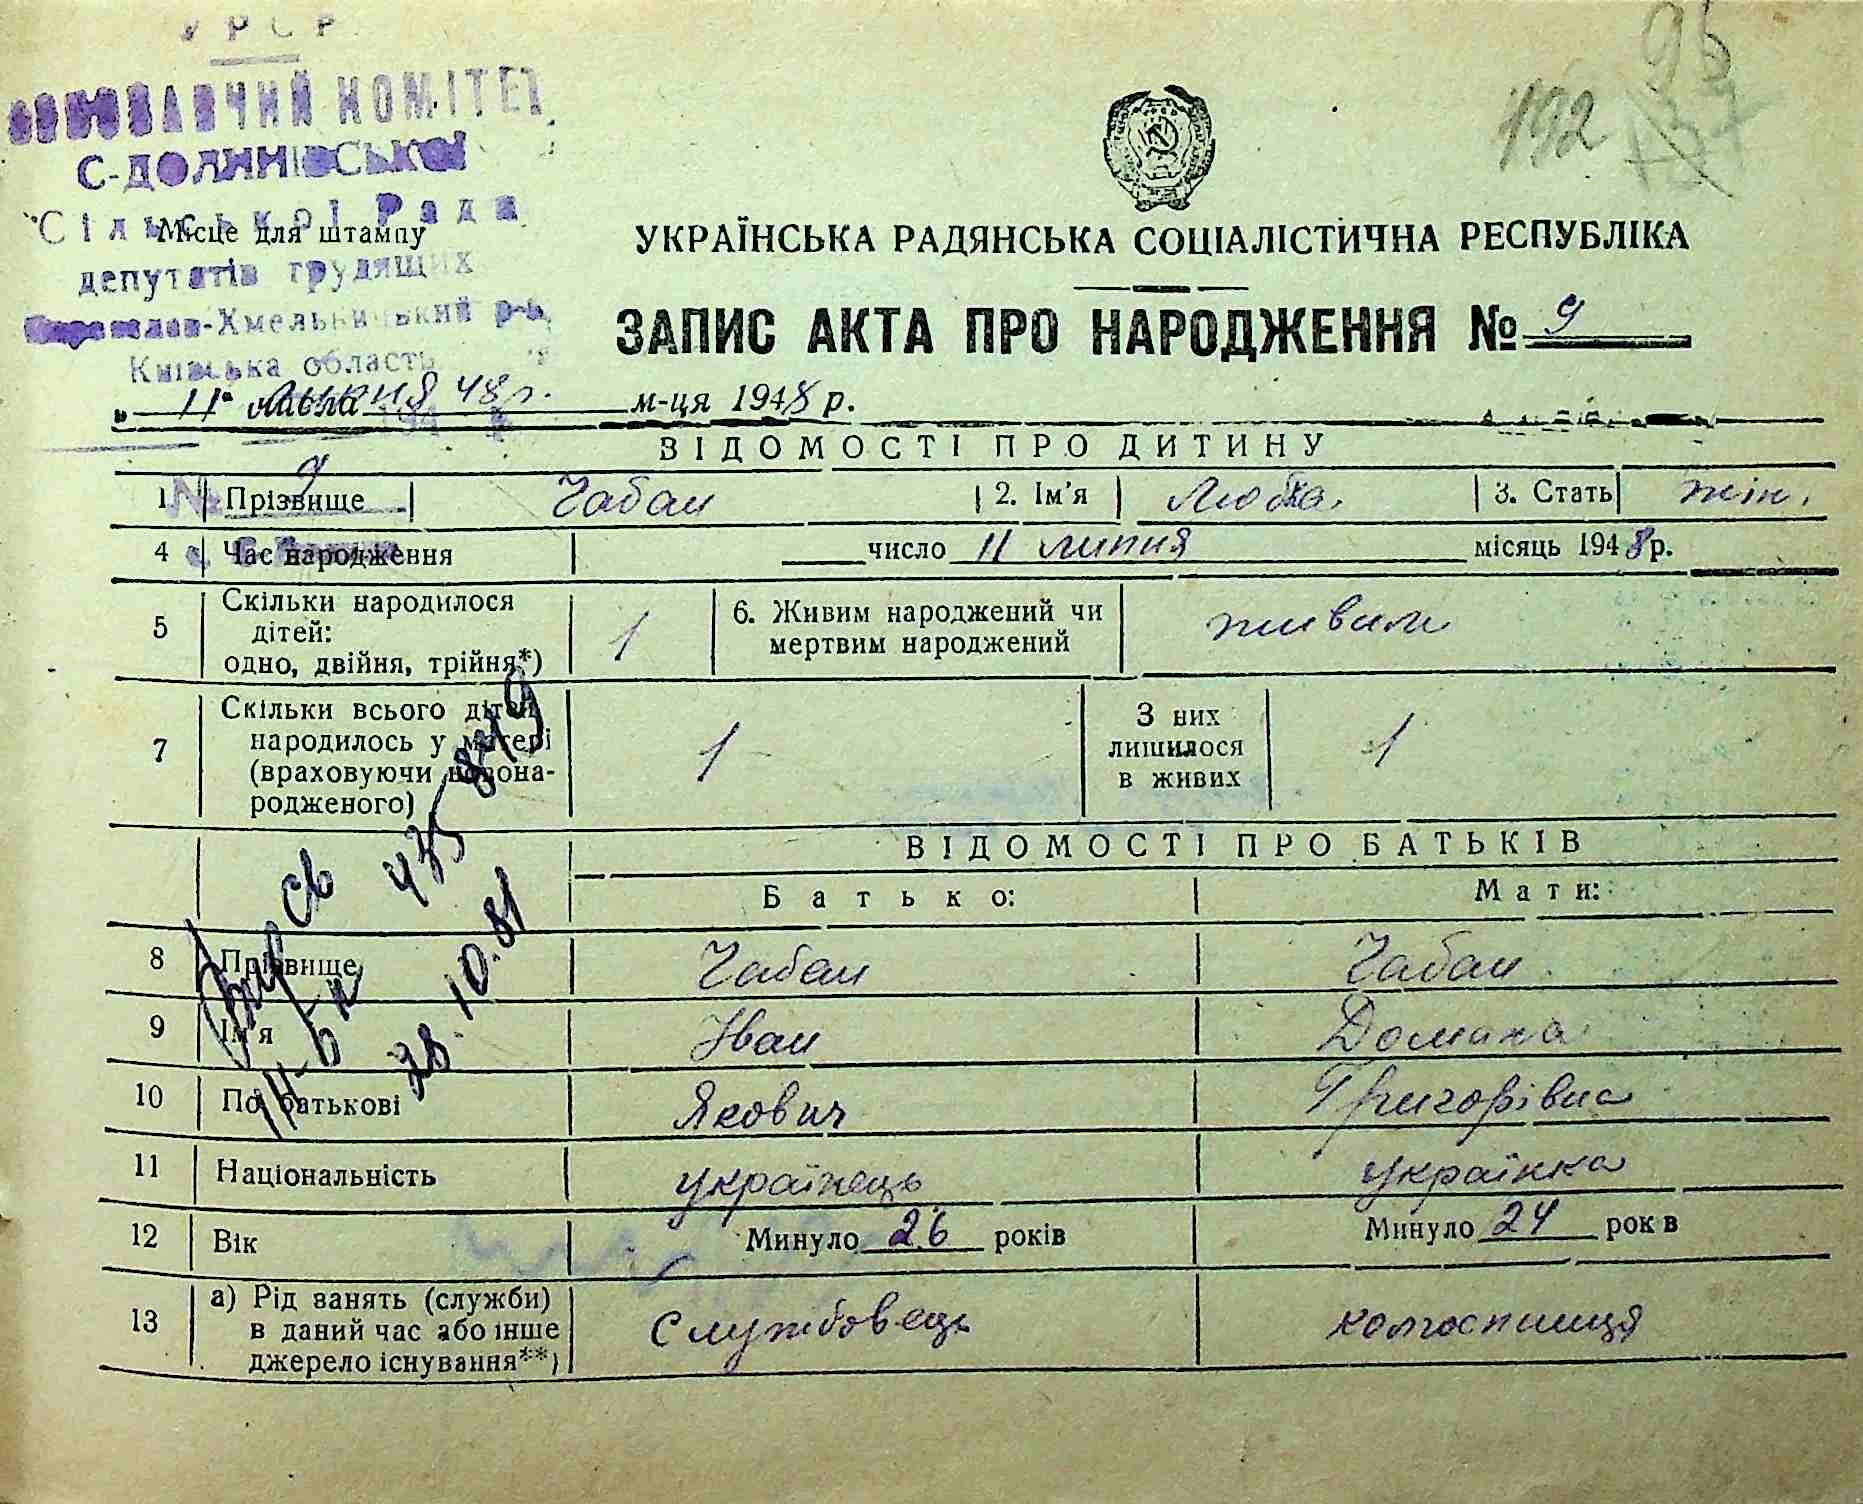 УРСР
ВИКОНАВЧИЙ КОМІТЕТ
С-ДОЛИНІВСЬКОЇ
Сільської Ради
депутатів трудящих
Переяслав-Хмельницький р-н,
Київська область
Місце для штампу
95
192
137
УКРАЇНСЬКА РАДЯНСЬКА СОЦІАЛІСТИЧНА РЕСПУБЛІКА
ЗАПИС АКТА ПРО НАРОДЖЕННЯ № 9
„ 11 " числа липня 48 р. м-ця 1948 р.
ВІДОМОСТІ ПРО ДИТИНУ
№ 9
1 Прізвище Чабан 2. Ім'я Люба. 3. Стать жін.
4 Час народження число 11 липня місяць 1948 р.
5 Скільки народилося дітей: одно, двійня, трійня*) 1 6. Живим народжений чи мертвим народжений живим
7 Скільки всього дітей народилось у матері (враховуючи новонародженого) 1 З них лишилося в живих 1
ВІДОМОСТІ ПРО БАТЬКІВ
Батько: Мати:
8 Прізвище Чабан Чабан
9 Ім'я Іван Домана
10 По батькові Якович Григорівна
11 Національність українець українка
12 Вік Минуло 26 років Минуло 24 років
13 а) Рід занять (служби) в даний час або інше джерело існування**) Службовець колгоспниця
св
ІІІ-БК 435849
28.10.81